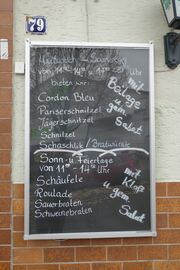 79
Mittwoch - Samstag
von 11³⁰ - 14⁰⁰ u. 17³⁰ - 22 Uhr
bieten wir:
Cordon Bleu
Pariserschnitzel
Jägerschnitzel
Schnitzel
Schaschlik / Bratwürste
mit
Beilage
u.
gem.
Salat
Sonn- u. Feiertage
von 11³⁰ - 14³⁰ Uhr
Schäufele
Roulade
Sauerbraten
Schweinebraten
mit
Kloß
u.
gem.
Salat